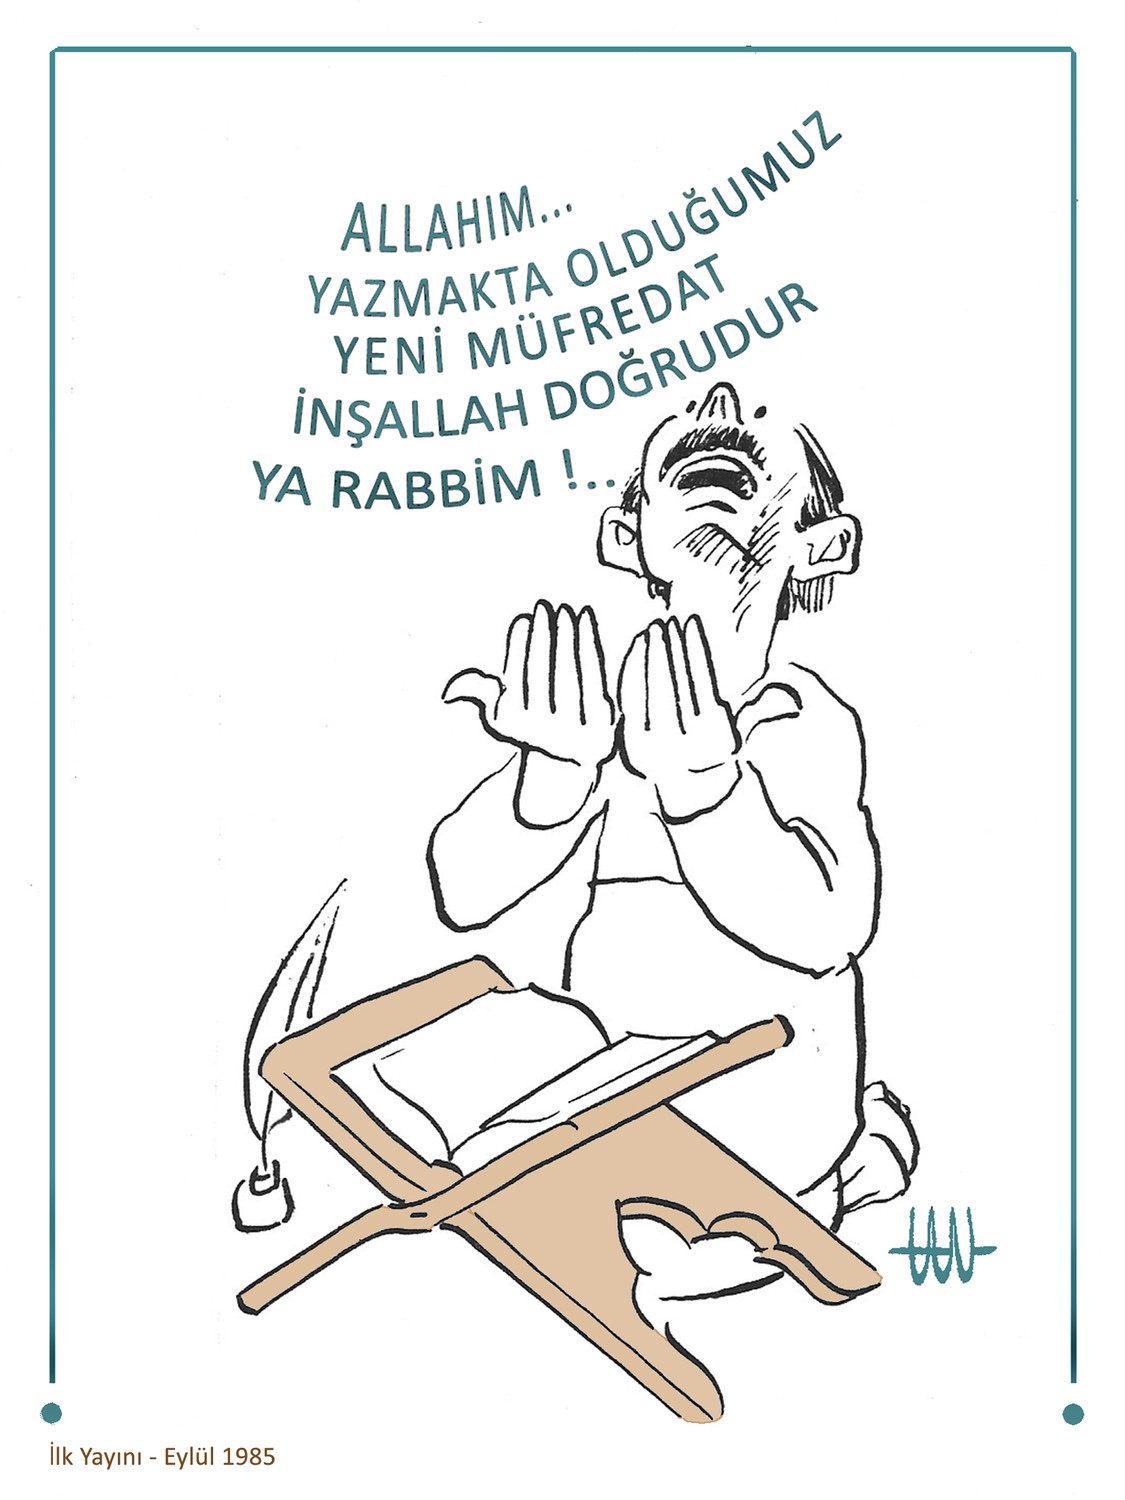 ALLAHIM...
YAZMAKTA OLDUĞUMUZ
YENİ MÜFREDAT
İNŞALLAH DOĞRUDUR
YA RABBİM !..
İlk Yayını - Eylül 1985